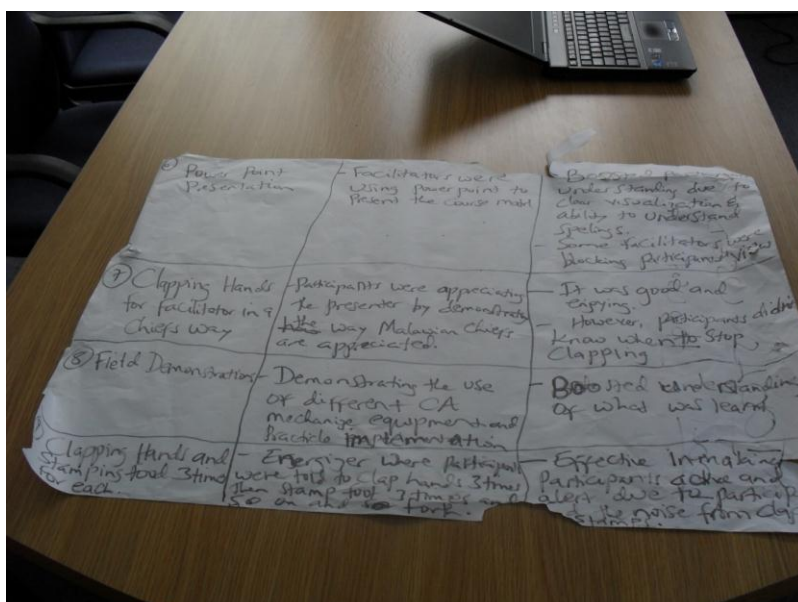 6 Power Point
Presentation
- Facilitators were
using powerpoint to
Present the course model
- Boosted
understanding due to
clear visualization &
ability to understand
Spelings.
- Some facilitators were
blocking participants view
7 Clapping Hands
for facilitator in a
Chiefs way
- Participants were appreciating
the presenter by demonstrating
the way Malawian Chiefs
are appreciated.
- It was good and
enjoying.
- However, participants didn't
know when to Stop
Clapping
8 Field Demonstration
- Demonstrating the use
of different CA
mechanize equipment and
Practicle implementation
- Boosted understanding
of what was learnt
Clapping Hands and
Stamping 3 times
for each.
- Energizer were participants
were told to clap hands 3 times
then Stamp and
so on and so forth.
- Effective in making
Participants active and
alert due to
noise from